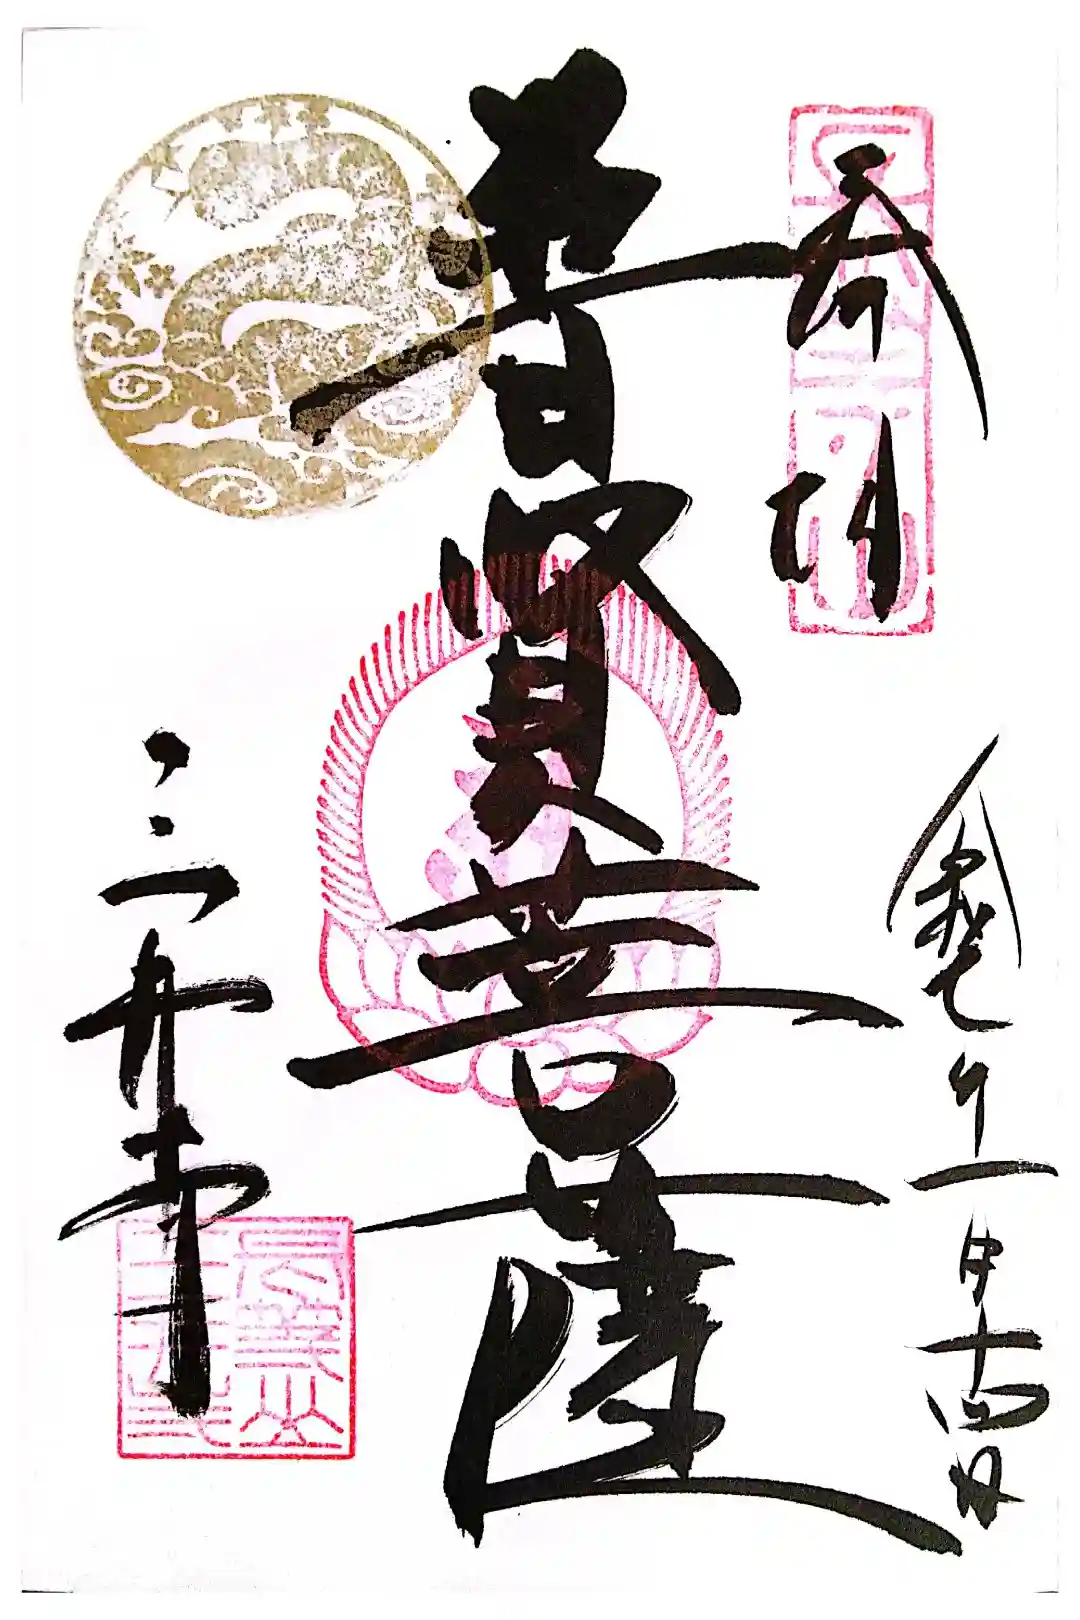 奉拝
令和七年一月十四日
普賢菩薩
三井寺
長等山